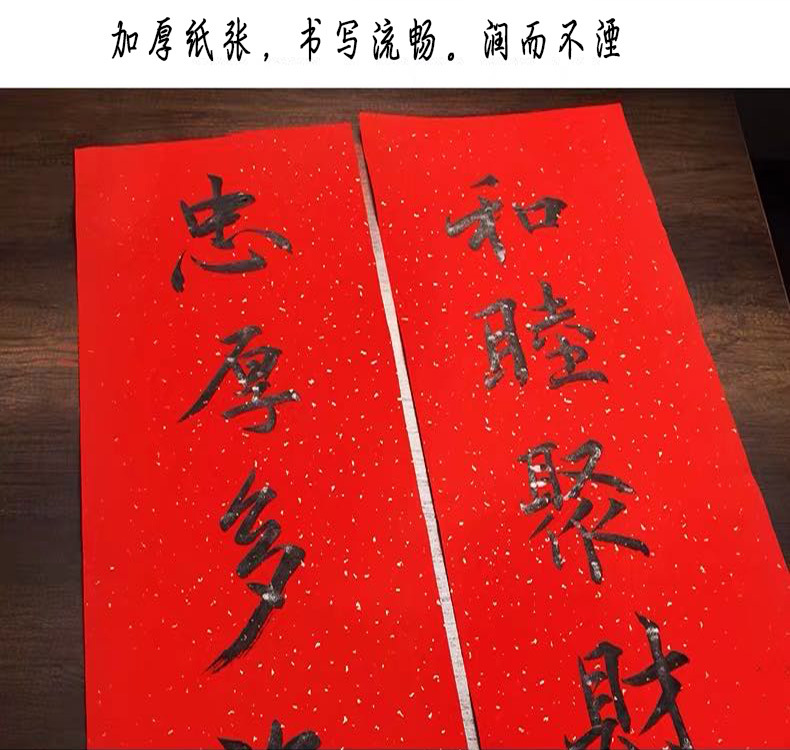 加厚纸张，书写流畅。润而不湮
和睦聚财
忠厚多